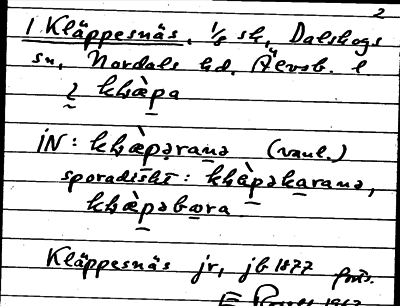 2
1 Kläppesnäs, 1/8 sk, Dalskogs
sn, Nordals hd. Älvsb. l
khæ̀pa
iN: khæ̀pərana (vanl.)
sporadiskt: khæ̀pəkarana,
khæ̀pəbæra
Kläppesnäs jr, jb 1877